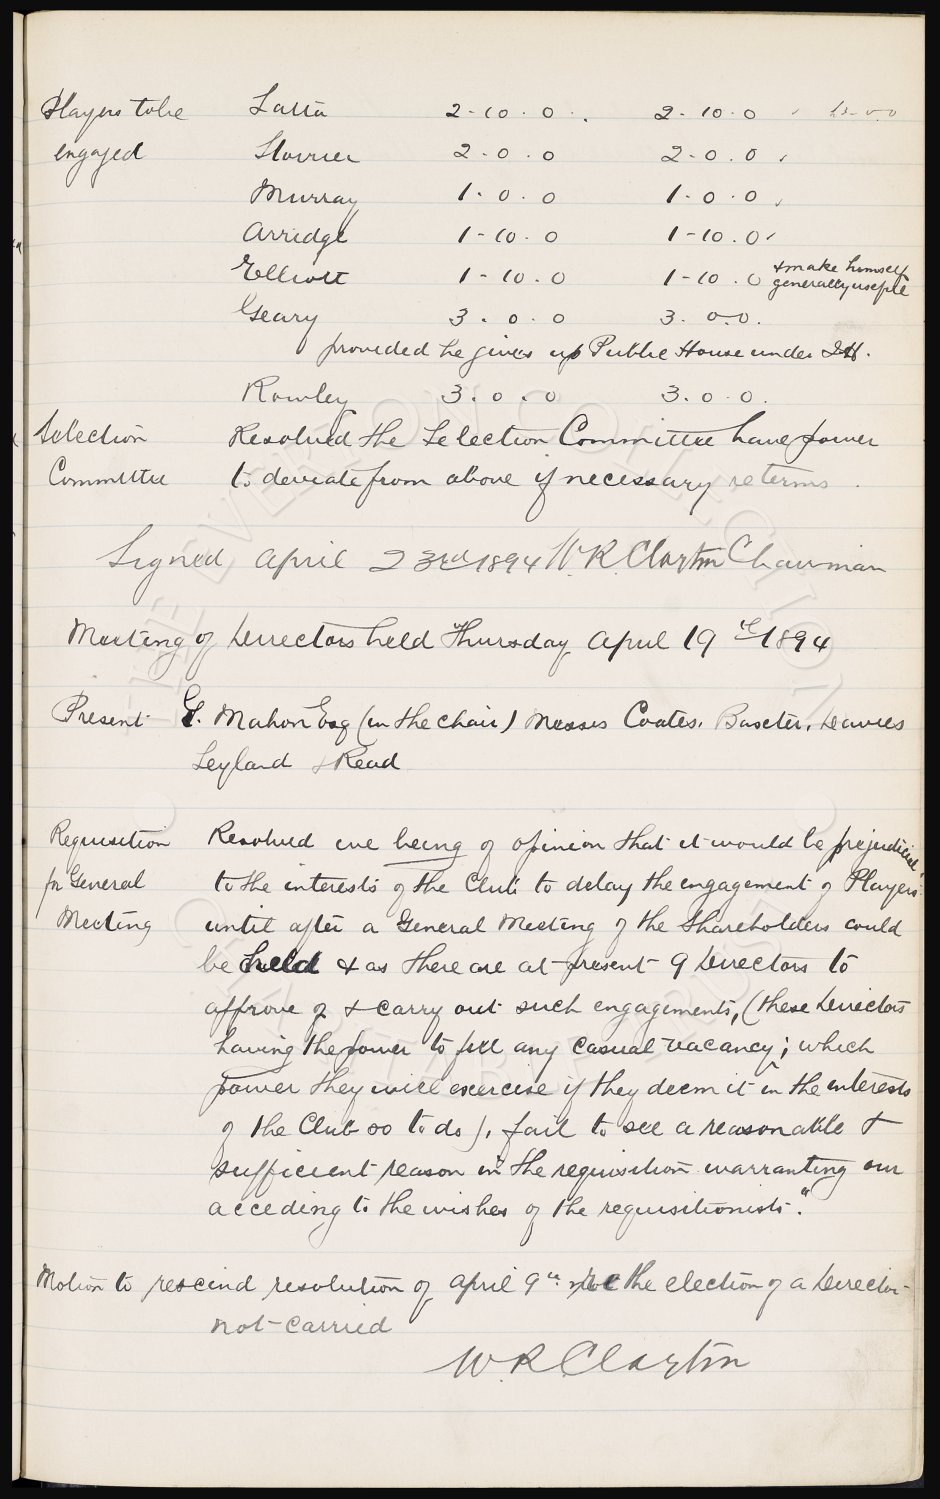 Players to be Latta 2-10.0 2-10.0
engaged Storrier 2.0.0 2.0.0
Murray 1.0.0 1.0.0
Arridge 1-10.0 1-10.0
Elliott 1-10.0 1-10.0 & make himself generally useful
Geary 3.0.0 3.0.0.
provided he gives up Public House under
Rowley 3.0.0 3.0.0.
Selection Resolved the Selection Committee have power
Committee to deviate from above if necessary re terms.
Signed April 23rd 1894 W.R. Clayton Chairman
Meeting of Directors held Thursday April 19th 1894
Present G. Mahon Esq (in the chair) Messrs Coates. Baxter. Davies
Leyland & Read
Requisition Resolved we being of opinion that it would be prejudicial
for General to the interests of the Club to delay the engagement of Players
Meeting until after a General Meeting of the Shareholders could
be held & as there are at present 9 Directors to
approve of & carry out such engagements, (these Directors
having the power to fill any casual vacancy; which
power they will exercise if they deem it in the interests
of the Club so to do), fail to see a reasonable &
sufficient reason in the requisition warranting our
acceding to the wishes of the requisitionists."
Motion to rescind resolution of April 9th the election of a Director
not carried
W.R. Clayton
THE EVERTON COLLECTION
CHARITABLE TRUST